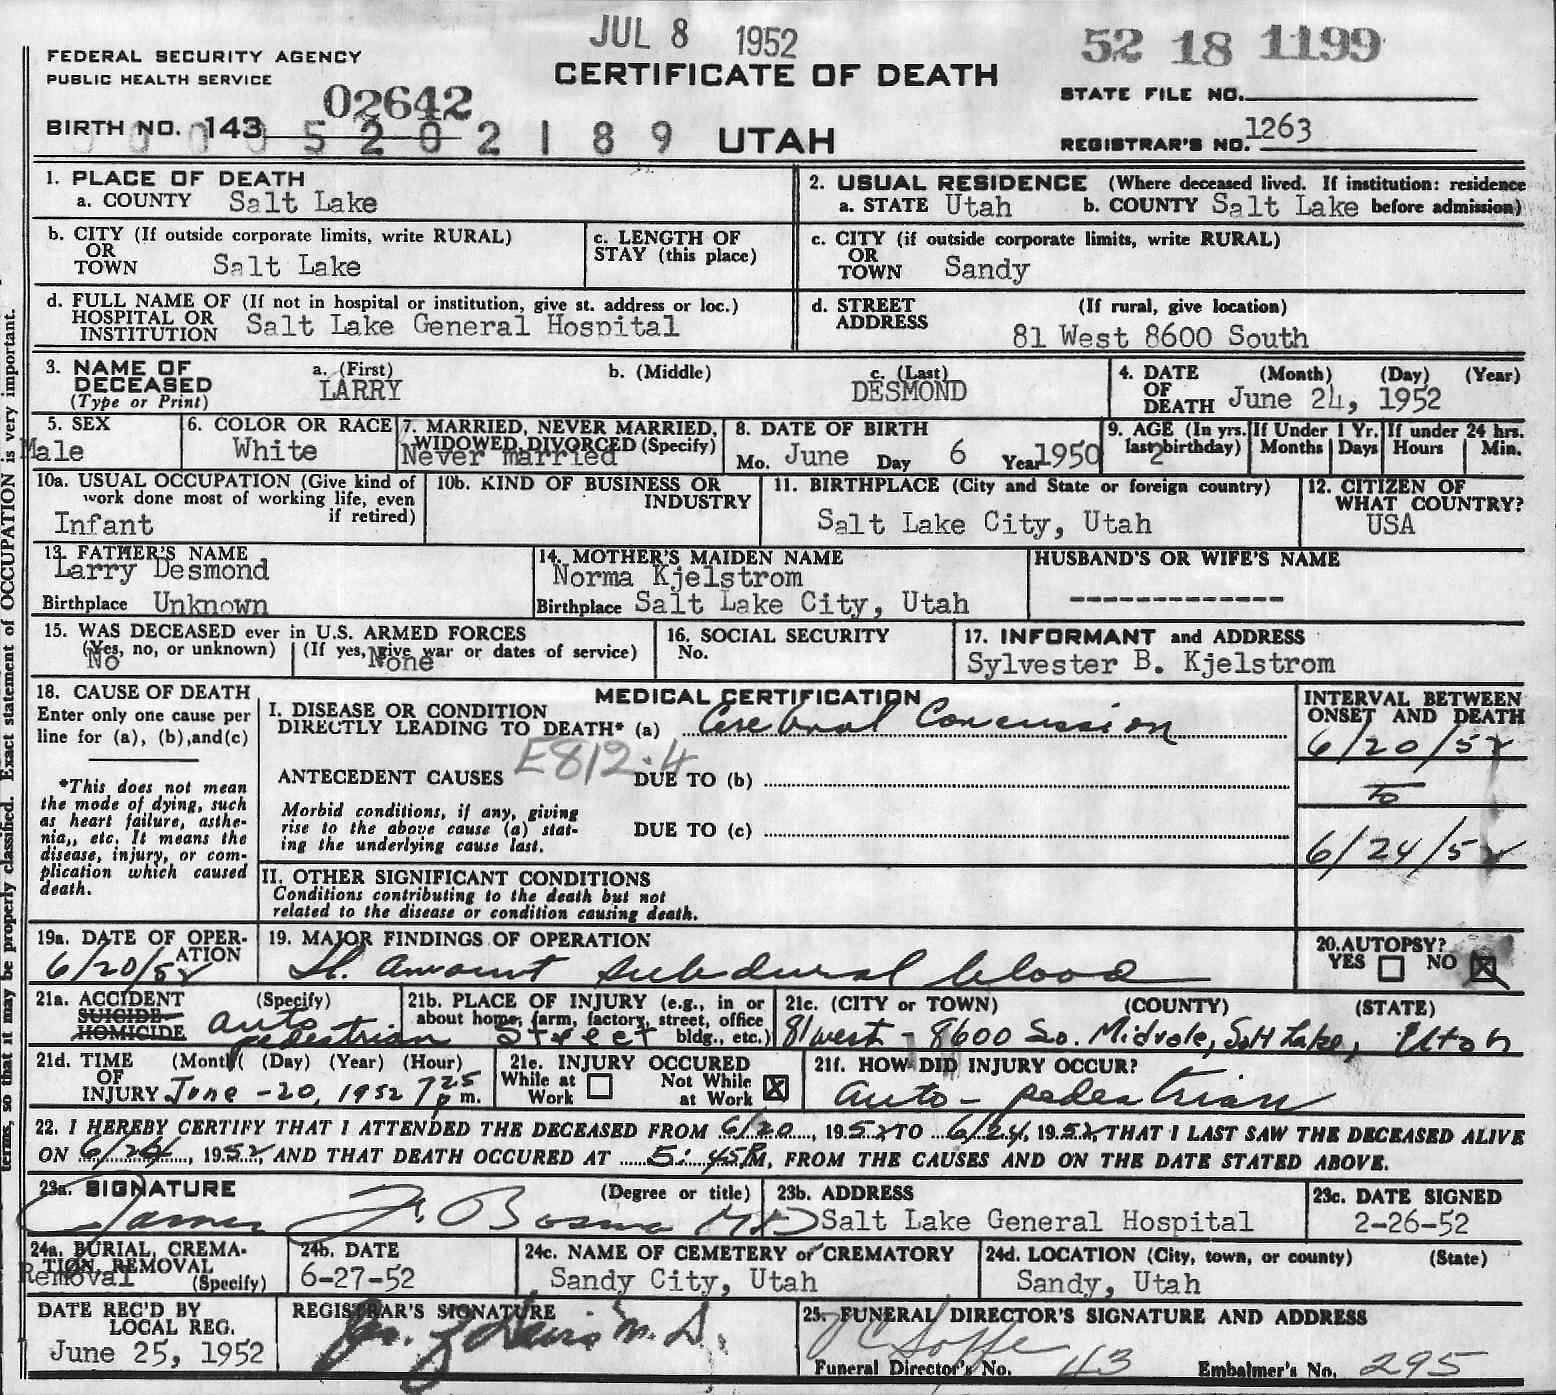 JUL 8 1952
52 18 1199
FEDERAL SECURITY AGENCY
PUBLIC HEALTH SERVICE
CERTIFICATE OF DEATH
STATE FILE NO.
02642
BIRTH NO. 143
5202189
UTAH
REGISTRAR'S NO. 1263
1. PLACE OF DEATH
a. COUNTY Salt Lake
2. USUAL RESIDENCE (Where deceased lived. If institution: residence before admission)
a. STATE Utah b. COUNTY Salt Lake
b. CITY (If outside corporate limits, write RURAL)
OR
TOWN Salt Lake
c. LENGTH OF
STAY (this place)
c. CITY (if outside corporate limits, write RURAL)
OR
TOWN Sandy
d. FULL NAME OF (If not in hospital or institution, give st. address or loc.)
HOSPITAL OR
INSTITUTION Salt Lake General Hospital
d. STREET (If rural, give location)
ADDRESS 81 West 8600 South
3. NAME OF
DECEASED
(Type or Print)
a. (First) b. (Middle) c. (Last)
LARRY DESMOND
4. DATE (Month) (Day) (Year)
OF
DEATH June 24, 1952
5. SEX
Male
6. COLOR OR RACE
White
7. MARRIED, NEVER MARRIED,
WIDOWED, DIVORCED (Specify)
Never married
8. DATE OF BIRTH
Mo. June Day 6 Year 1950
9. AGE (In yrs. last birthday)
2
If Under 1 Yr.
Months Days
If under 24 hrs.
Hours Min.
10a. USUAL OCCUPATION (Give kind of
work done most of working life, even
if retired)
Infant
10b. KIND OF BUSINESS OR
INDUSTRY
11. BIRTHPLACE (City and State or foreign country)
Salt Lake City, Utah
12. CITIZEN OF
WHAT COUNTRY?
USA
13. FATHER'S NAME
Larry Desmond
Birthplace Unknown
14. MOTHER'S MAIDEN NAME
Norma Kjelstrom
Birthplace Salt Lake City, Utah
HUSBAND'S OR WIFE'S NAME
-------------
15. WAS DECEASED ever in U.S. ARMED FORCES
(Yes, no, or unknown) (If yes, give war or dates of service)
No None
16. SOCIAL SECURITY
No.
17. INFORMANT and ADDRESS
Sylvester B. Kjelstrom
18. CAUSE OF DEATH
Enter only one cause per
line for (a), (b), and (c)
*This does not mean
the mode of dying, such
as heart failure, asthe-
nia,, etc. It means the
disease, injury, or com-
plication which caused
death.
MEDICAL CERTIFICATION
I. DISEASE OR CONDITION
DIRECTLY LEADING TO DEATH* (a) Cerebral Concussion
E812.4
ANTECEDENT CAUSES DUE TO (b)
Morbid conditions, if any, giving
rise to the above cause (a) stat-
ing the underlying cause last.
DUE TO (c)
INTERVAL BETWEEN
ONSET AND DEATH
6/20/52
To
6/24/52
II. OTHER SIGNIFICANT CONDITIONS
Conditions contributing to the death but not
related to the disease or condition causing death.
19a. DATE OF OPER-
ATION
6/20/52
19. MAJOR FINDINGS OF OPERATION
Sl. amount subdural blood
20. AUTOPSY?
YES NO X
21a. ACCIDENT (Specify)
SUICIDE
HOMICIDE
auto
pedestrian
21b. PLACE OF INJURY (e.g., in or
about home, farm, factory, street, office
bldg., etc.)
Street
21c. (CITY or TOWN) (COUNTY) (STATE)
81 west - 8600 So. Midvale, Salt Lake, Utah
21d. TIME (Month) (Day) (Year) (Hour)
OF
INJURY June -20, 1952 7 25 p m.
21e. INJURY OCCURED
While at
Work
Not While
at Work X
21f. HOW DID INJURY OCCUR?
auto - pedestrian
22. I HEREBY CERTIFY THAT I ATTENDED THE DECEASED FROM 6/20, 1952 TO 6/24, 1952, THAT I LAST SAW THE DECEASED ALIVE
ON 6/24, 1952, AND THAT DEATH OCCURED AT 5:45 P M, FROM THE CAUSES AND ON THE DATE STATED ABOVE.
23a. SIGNATURE (Degree or title)
James F. Bosma MD
23b. ADDRESS
Salt Lake General Hospital
23c. DATE SIGNED
2-26-52
24a. BURIAL, CREMA-
TION, REMOVAL
(Specify)
Removal
24b. DATE
6-27-52
24c. NAME OF CEMETERY or CREMATORY
Sandy City, Utah
24d. LOCATION (City, town, or county) (State)
Sandy, Utah
DATE REC'D BY
LOCAL REG.
June 25, 1952
REGISTRAR'S SIGNATURE
M.D.
25. FUNERAL DIRECTOR'S SIGNATURE AND ADDRESS
Funeral Director's No. 43 Embalmer's No. 295
terms, so that it may be properly classified. Exact statement of OCCUPATION is very important.